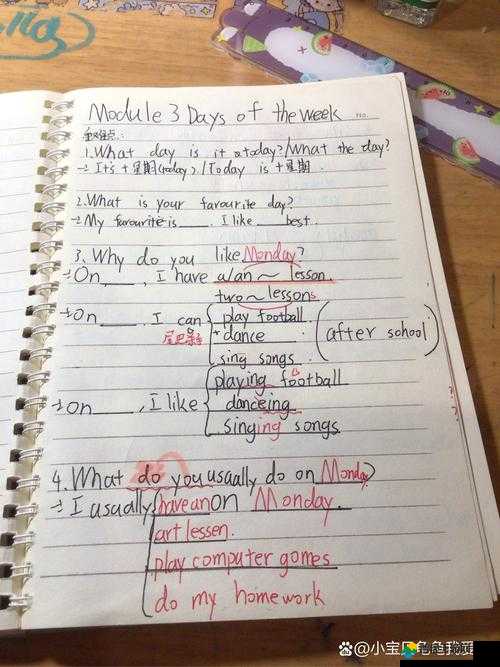 Module 3 Days of the week
NO.
重难点:
1. What day is it today?/What the day?
→ It's + 星期(today)./Today is + 星期.
2. What is your favourite day?
→ My favourite is ____. I like ____ best.
3. Why do you like Monday?
→ On ____, I have a/an ~ lesson.
two ~ lessons
→ On ____. I can { play football
+ dance
sing songs
(after school)
→ On ____, I like { playing football
danceing
singing songs
4. What do you usually do on Monday?
→ I usually { have an on Monday.
art lessen.
play computer gomes
do my homework
@小宝贝龟龟我爱